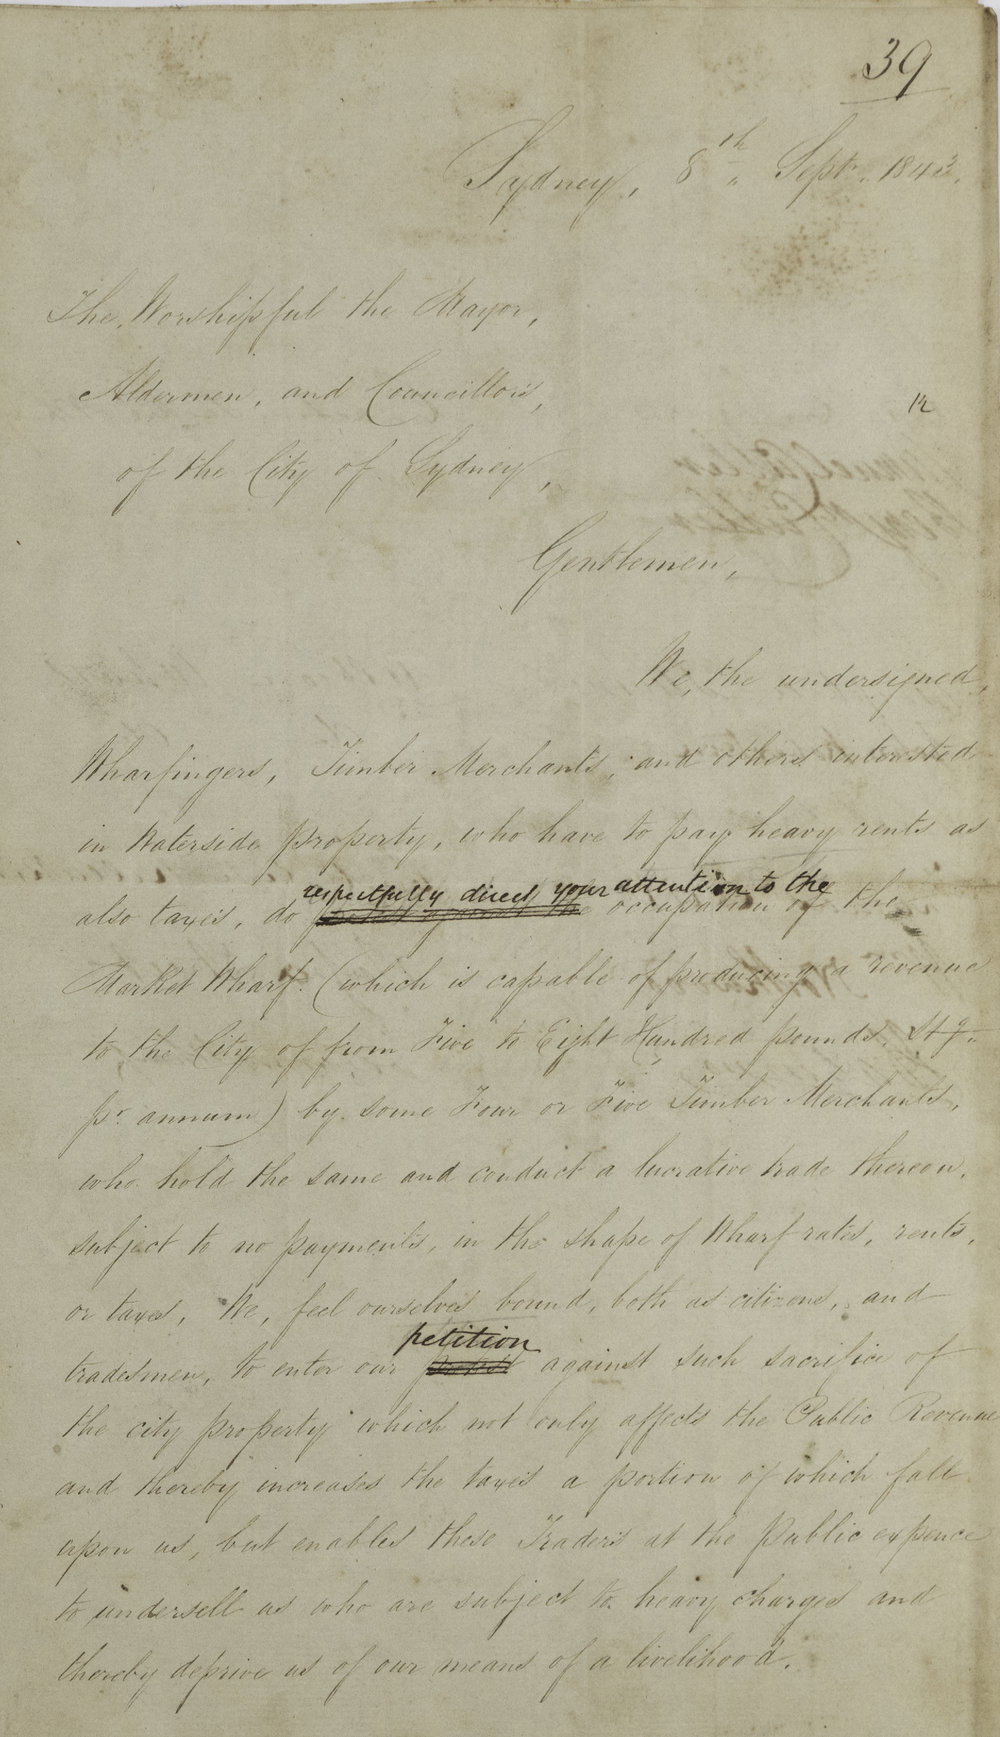 39
Sydney, 8th Sept. 1843.
The Worshipful the Mayor,
Aldermen, and Councillors,
of the City of Sydney,
12
Gentlemen,
We, the undersigned,
Wharfingers, Timber Merchants, and others interested
in Waterside property, who have to pay heavy rents as
respectfully direct your attention to the
also taxes, do the occupation of the
Market Wharf. (which is capable of producing a revenue
to the City of from Five to Eight Hundred pounds Stg.
pr. annum) by some Four or Five Timber Merchants,
who hold the same and conduct a lucrative trade thereon,
subject to no payments, in the shape of Wharf rates, rents,
or taxes, We, feel ourselves bound, both as citizens, and
petition
tradesmen, to enter our against such sacrifice of
the city property which not only affects the Public Revenue
and thereby increases the taxes a portion of which fall
upon us, but enables these Traders at the Public expence
to undersell us who are subject to heavy charges and
thereby deprive us of our means of a livelihood.